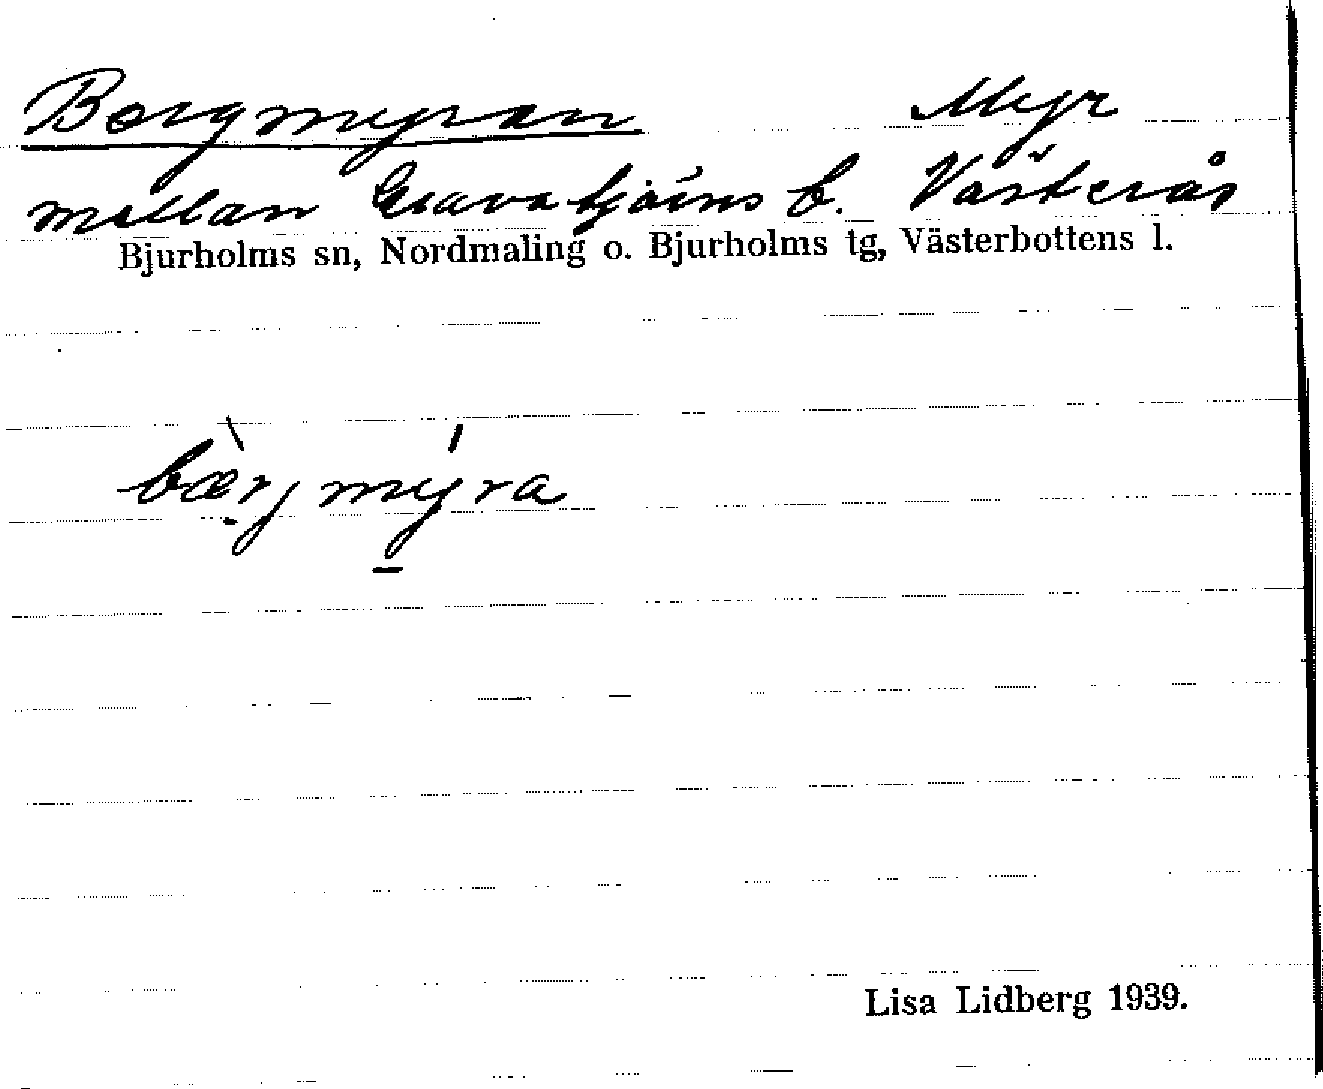 Bergmyran Myr
mellan Gravatjärns b. Västerås
Bjurholms sn, Nordmaling o. Bjurholms tg, Västerbottens l.
bæ̀rj mýra
Lisa Lidberg 1939.